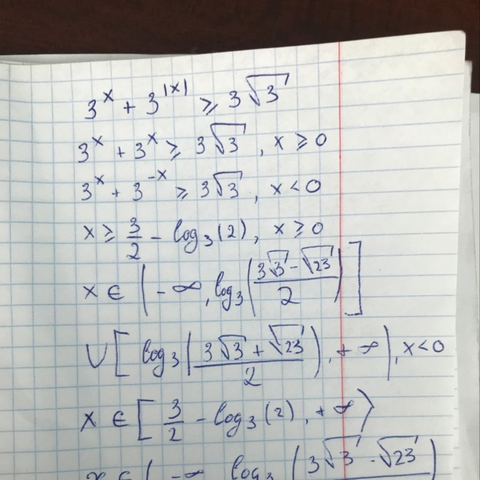 3^x + 3^|x| ≥ 3√3
3^x + 3^x ≥ 3√3, x ≥ 0
3^x + 3^-x ≥ 3√3, x < 0
x ≥ 3/2 - log₃(2), x ≥ 0
x ∈ (-∞, log₃((3√3 - √23)/2)]
∪ [log₃((3√3 + √23)/2), +∞), x<0
x ∈ [3/2 - log₃(2), +∞)
x ∈ (-∞, log₃(3√3 - √23)